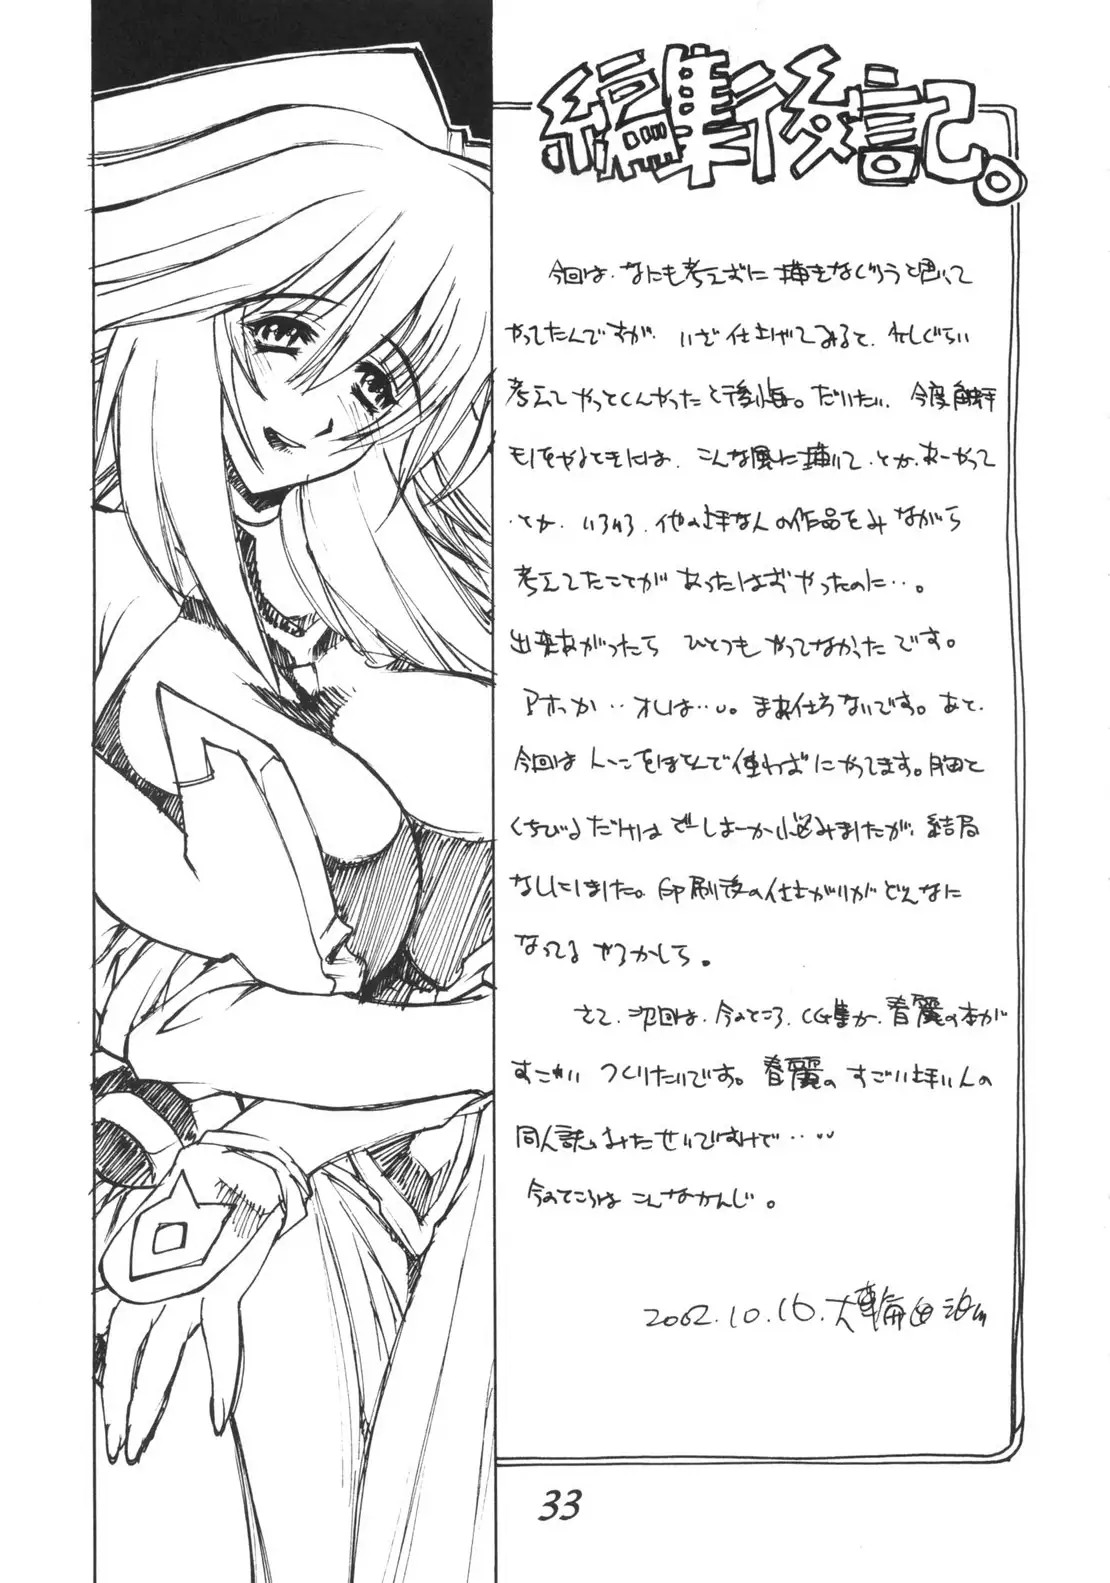 編集後記。
今回は、なにも考えずに描きなぐろうと思って
やってたんですが、いざ仕上げてみると、少しぐらい
考えてやっとくんやったと後悔。だいたい、今度触手
モノをやるときには、こんな風に描いて、とか、あーやって
とか、いろいろ、他の上手な人の作品をみながら
考えてたことがあったはずやったのに…。
出来あがったら ひとつも やってなかったです。
アホっか‥オレは…。まあ仕方ないです。あと、
今回はトーンをほとんど使わずにやってます。胸と
くちびるだけはどーしよーか悩みましたが、結局
なしにしました。印刷後の仕上がりがどんなに
なってる やろかしら。
さて、次回は、今のところ、CG集か、春麗の本が
すこかい つくりたいです。春麗の すごい上手い人の
同人誌いみたせいですけど…‥
今のところは こんなかんじ。
2002.10.16.大輪田
33